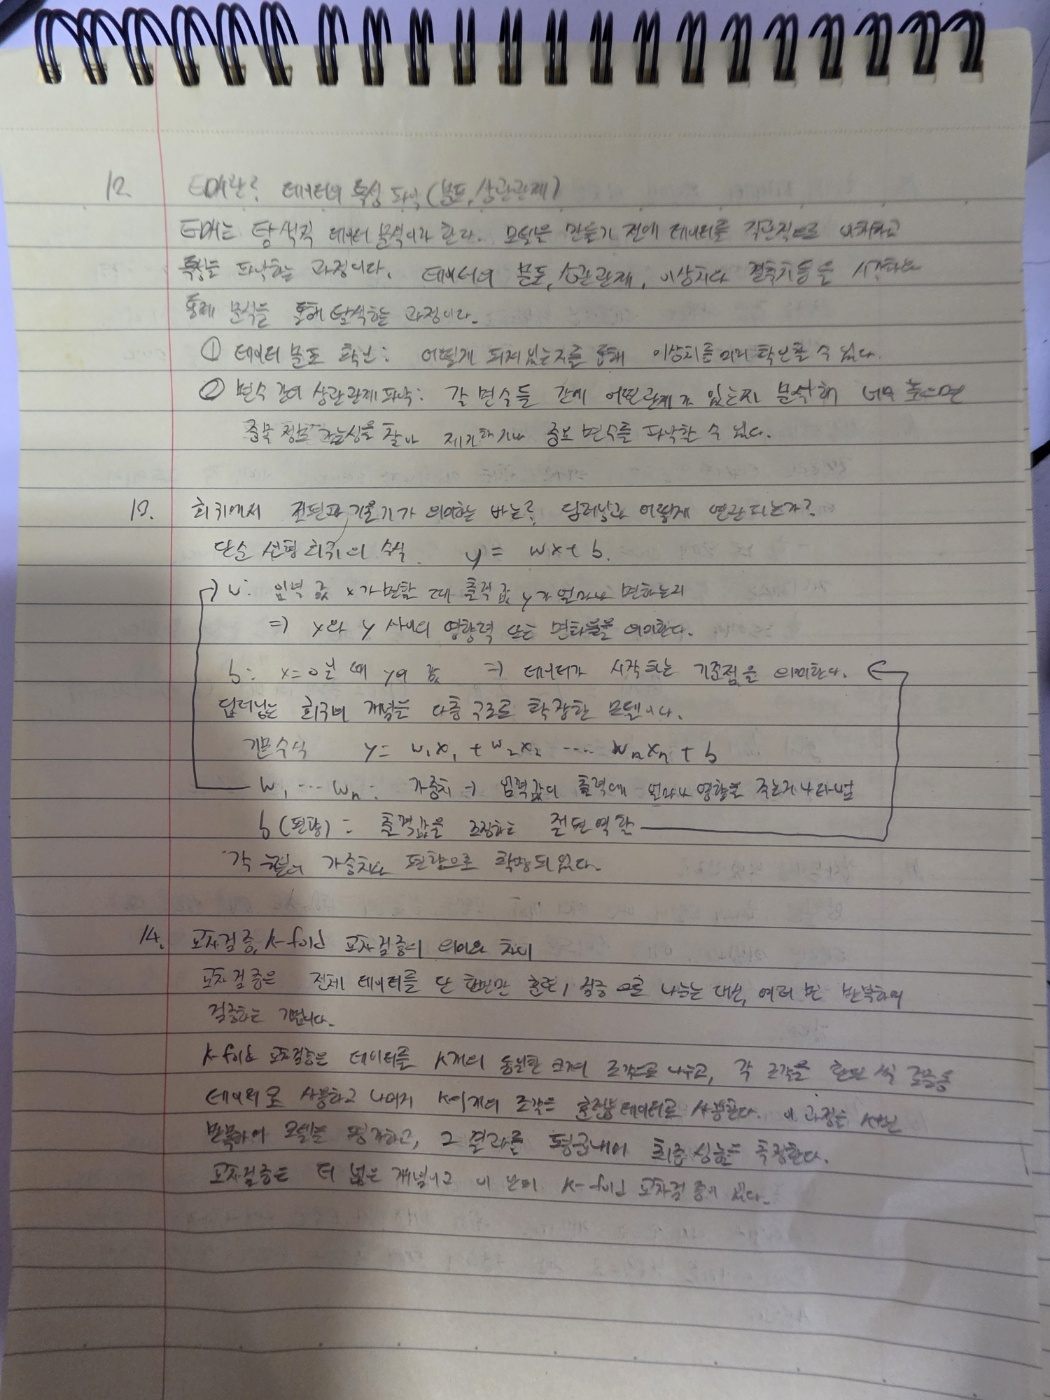 12. EDA란? 데이터의 특성 파악(분포, 상관관계)
EDA는 탐색적 데이터 분석이라 한다. 모델을 만들기 전에 데이터를 직관적으로 이해하고
특징을 파악하는 과정이다. 데이터의 분포, 상관관계, 이상치나 결측치 등을
통계 분석을 통해 탐색하는 과정이다.
① 데이터 분포 확인: 어떻게 퍼져 있는지를 통해 이상치를 미리 확인할 수 있다.
② 변수 간의 상관관계 파악: 각 변수들 간에 어떤 관계가 있는지 분석해 너무 높으면
중복 정보 가능성을 찾아 제거하거나 중요 변수를 파악할 수 있다.
13. 회귀에서 절편과 기울기가 의미하는 바는? 딥러닝과 어떻게 연관되는가?
단순 선형 회귀의 수식. y = wx + b.
w: 입력 값 x가 변할 때 출력 값 y가 얼마나 변하는지
⇒ x와 y 사이의 영향력 또는 변화율을 의미한다.
b: x=0일 때 y의 값 ⇒ 데이터가 시작하는 기준점을 의미한다.
딥러닝은 회귀의 개념을 다층 구조로 확장한 모델이다.
기본수식 y = w₁x₁ + w₂x₂ ···· wₙxₙ + b
w₁ ···· wₙ: 가중치 → 입력값이 출력에 얼마나 영향을 주는지 나타냄
b(편향) = 출력값을 조정하는 절편 역할
각 가중치와 편향으로 확장되었다.
14. 교차검증, K-fold 교차검증의 의미와 차이
교차 검증은 전체 데이터를 단 한번만 훈련/검증으로 나누는 대신, 여러 번 반복하여
검증하는 기법이다.
K-fold 교차검증은 데이터를 K개의 동일한 크기의 조각으로 나누고, 각 조각을 한번씩 검증용
데이터로 사용하고 나머지 K-1개의 조각은 훈련용 데이터로 사용한다. 이 과정을 K번
반복하여 모델을 평가하고, 그 결과를 평균내어 최종 성능을 측정한다.
교차검증은 더 넓은 개념이고 이 안에 K-fold 교차검증이 있다.